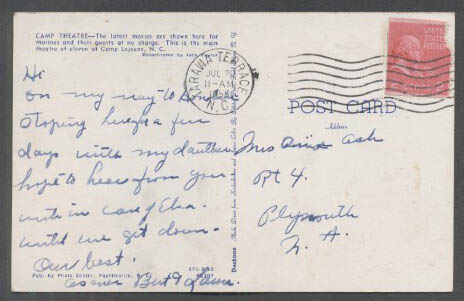 CAMP THEATRE—The latest movies are shown here for
Marines and their guests at no charge. This is the main
theatre of eleven at Camp Lejeune, N. C.
Hi
on my way to
stoping here for a few
days with my daughter
hope to hear from you
write in care of
until we get down.
Our best.
Bert &
Pub. by Photo Center, Fayetteville, N. C.
TARAWA TERRACE
JUL 20
11 - AM
N.C.
UNITED
STATES
POSTAGE
POST CARD
Address
Mrs Ash
Rt 4.
Plymouth
N. H